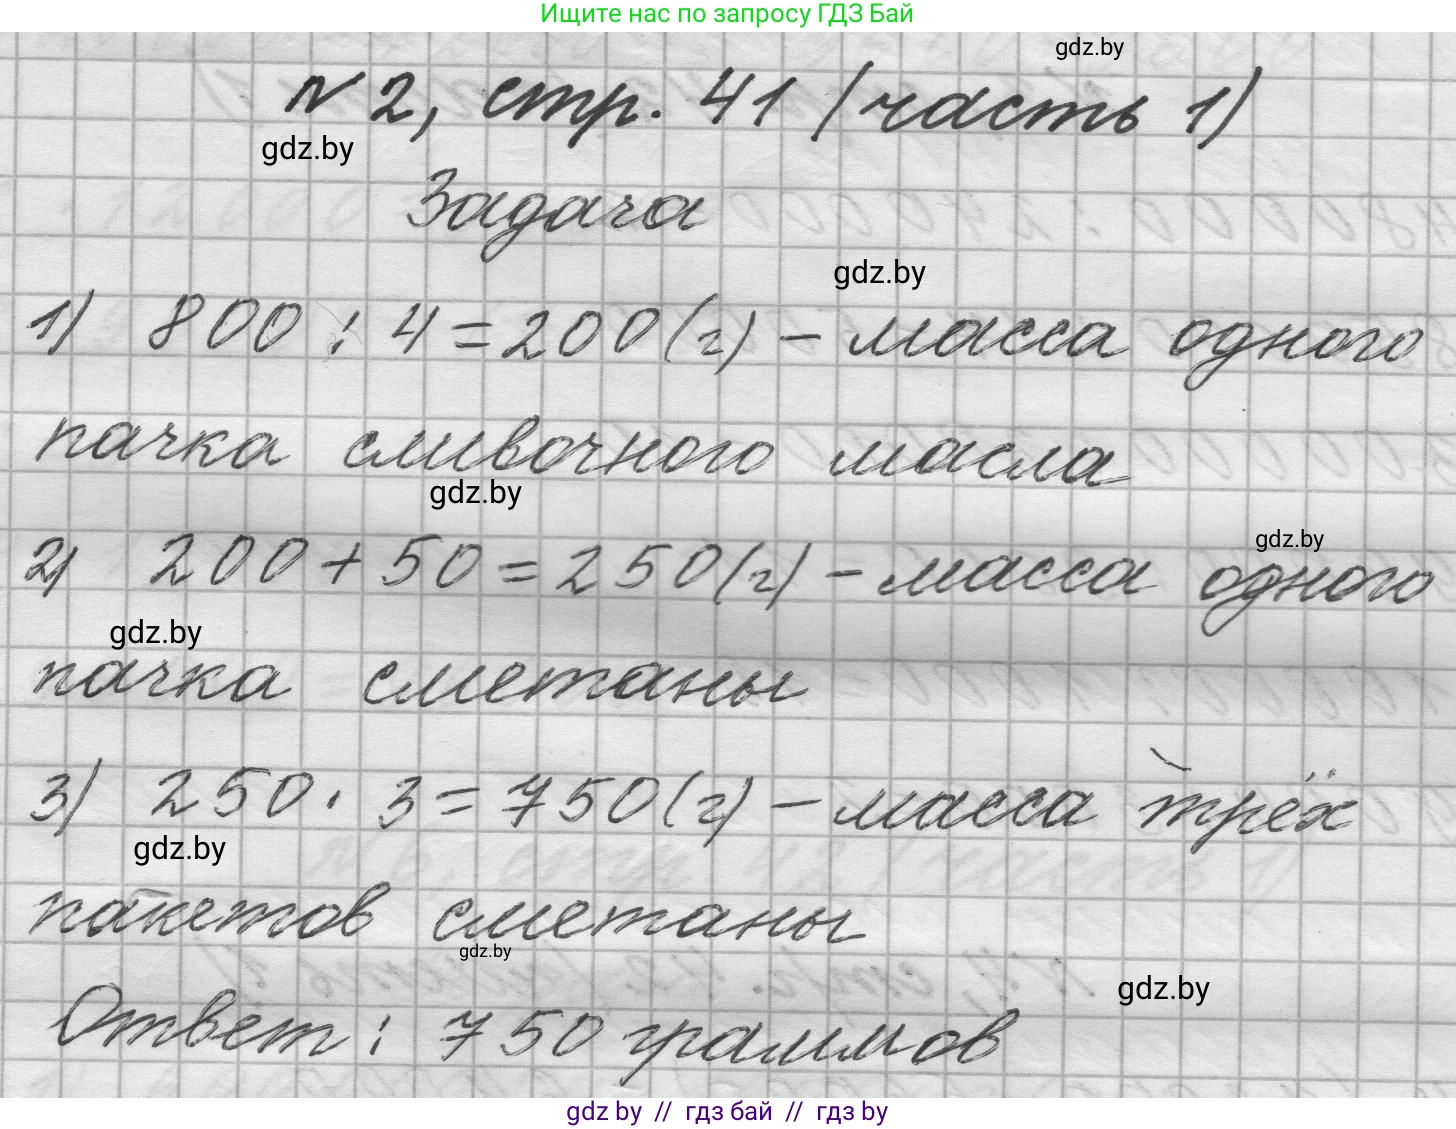 Ищите нас по запросу ГДЗ Бай
gdz.by
№2, стр. 41 (часть 1)
gdz.by
Задача
gdz.by
1) 800 : 4 = 200 (г) - масса одного
пачка сливочного масла
gdz.by
gdz.by
2) 200 + 50 = 250 (г) - масса одного
gdz.by
пачка сметаны
3) 250 · 3 = 750 (г) - масса трёх
gdz.by
пакетов сметаны
gdz.by
gdz.by
Ответ: 750 граммов
gdz by // гдз бай // гдз by